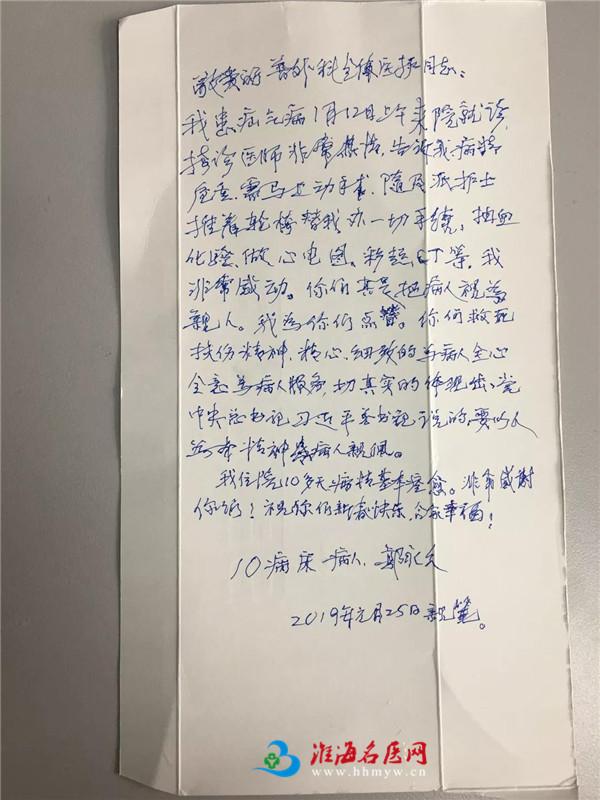 敬爱的普外科全体医护同志:
我患疝气病1月12日上午来院就诊,
接诊医师非常热情,告诉我病情
严重,需马上动手术,随及派护士
推着轮椅替我办一切手续,抽血
化验、做心电图、彩超、CT等,我
非常感动。你们真是把病人视为
亲人。我为你们点赞。你们救死
扶伤精神,精心、细致的为病人全心
全意为病人服务,切真实的体现出党
中央总书记习近平总书记说的,要以人
为本精神 病人亲佩。
我住院10多天病情基本痊愈。非常感谢
你们!祝你们新春快乐,合家幸福!
10病床病人、郭永久
2019年元月25日亲笔。
淮海名医网
www.hhmyw.cn